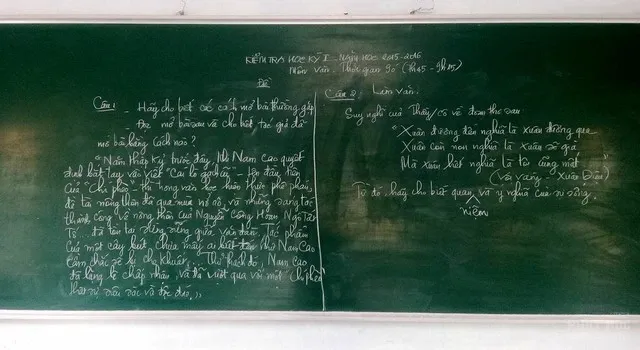 KIỂM TRA HỌC KỲ I - NĂM HỌC 2015-2016
Môn Văn - Thời gian 90' (7h45 - 9h15)
Đề
Câu 1
- Hãy cho biết các cách mở bài thường gặp
- Đọc mở bài sau và cho biết tác giả đã
mở bài bằng cách nào?
"Năm tháng trước đây, khi Nam Cao quyết
định bắt tay vào viết "Cái lò gạch cũ" - tên đầu tiên
của "Chí phèo" - thì trong văn học hiện thực phê phán,
đã
và những sáng tác
thành công về nông thôn của Nguyễn Công Hoan, Ngô Tất
Tố... đã tồn tại sừng sững giữa văn đàn. Tác phẩm
của một cây bút chưa mấy ai biết tên như Nam Cao
cầm chắc sẽ bị che khuất... Thử thách đó, Nam Cao
đã lặng lẽ chấp nhận, và đã vượt qua với một "Chí phèo"
thật sự sâu sắc và độc đáo."
Câu 2: Làm văn:
Suy nghĩ của Thầy/cô về đoạn thơ sau
"Xuân đương đến nghĩa là xuân đương qua
Xuân còn non nghĩa là xuân sẽ già
Mà xuân hết nghĩa là tôi cũng mất"
(Vội vàng - Xuân Diệu)
Từ đó, hãy cho biết quan niệm và ý nghĩa của sự sống.